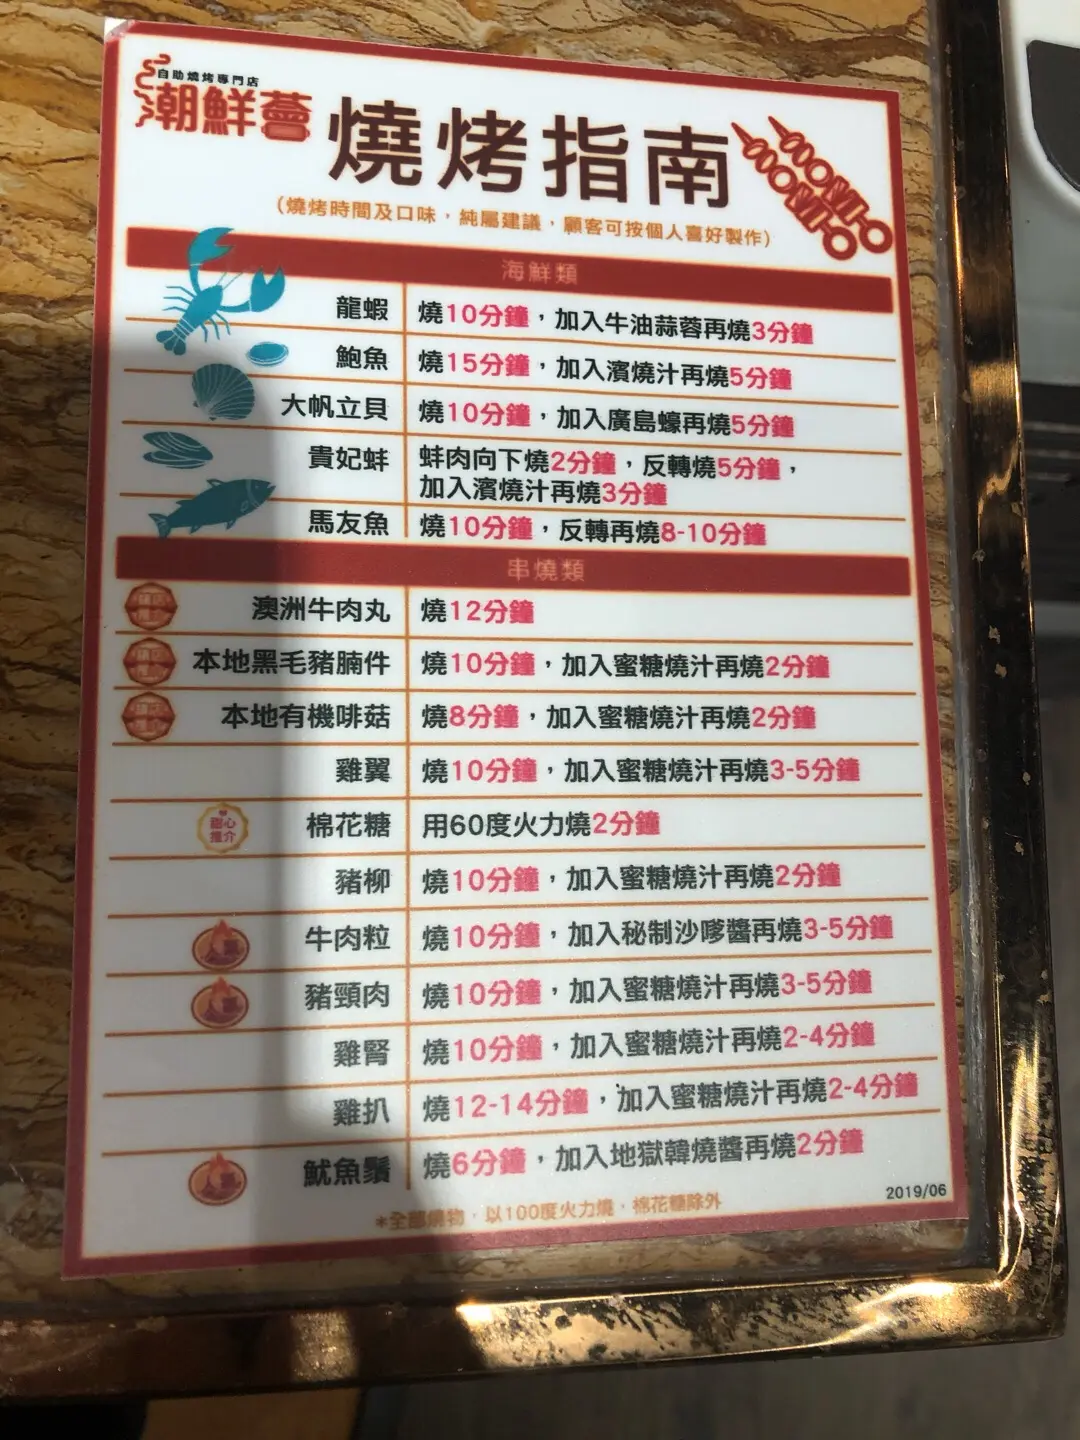 自助燒烤專門店
潮鮮薈
燒烤指南
(燒烤時間及口味，純屬建議，顧客可按個人喜好製作)
海鮮類
龍蝦 燒10分鐘，加入牛油蒜蓉再燒3分鐘
鮑魚 燒15分鐘，加入濱燒汁再燒5分鐘
大帆立貝 燒10分鐘，加入廣島蠔再燒5分鐘
貴妃蚌 蚌肉向下燒2分鐘，反轉燒5分鐘，
加入濱燒汁再燒3分鐘
馬友魚 燒10分鐘，反轉再燒8-10分鐘
串燒類
澳洲牛肉丸 燒12分鐘
本地黑毛豬腩件 燒10分鐘，加入蜜糖燒汁再燒2分鐘
本地有機啡菇 燒8分鐘，加入蜜糖燒汁再燒2分鐘
雞翼 燒10分鐘，加入蜜糖燒汁再燒3-5分鐘
甜心
推介
棉花糖 用60度火力燒2分鐘
豬柳 燒10分鐘，加入蜜糖燒汁再燒2分鐘
牛肉粒 燒10分鐘，加入秘制沙嗲醬再燒3-5分鐘
豬頸肉 燒10分鐘，加入蜜糖燒汁再燒3-5分鐘
雞腎 燒10分鐘，加入蜜糖燒汁再燒2-4分鐘
雞扒 燒12-14分鐘，加入蜜糖燒汁再燒2-4分鐘
魷魚鬚 燒6分鐘，加入地獄韓燒醬再燒2分鐘
2019/06
*全部燒物，以100度火力燒，棉花糖除外